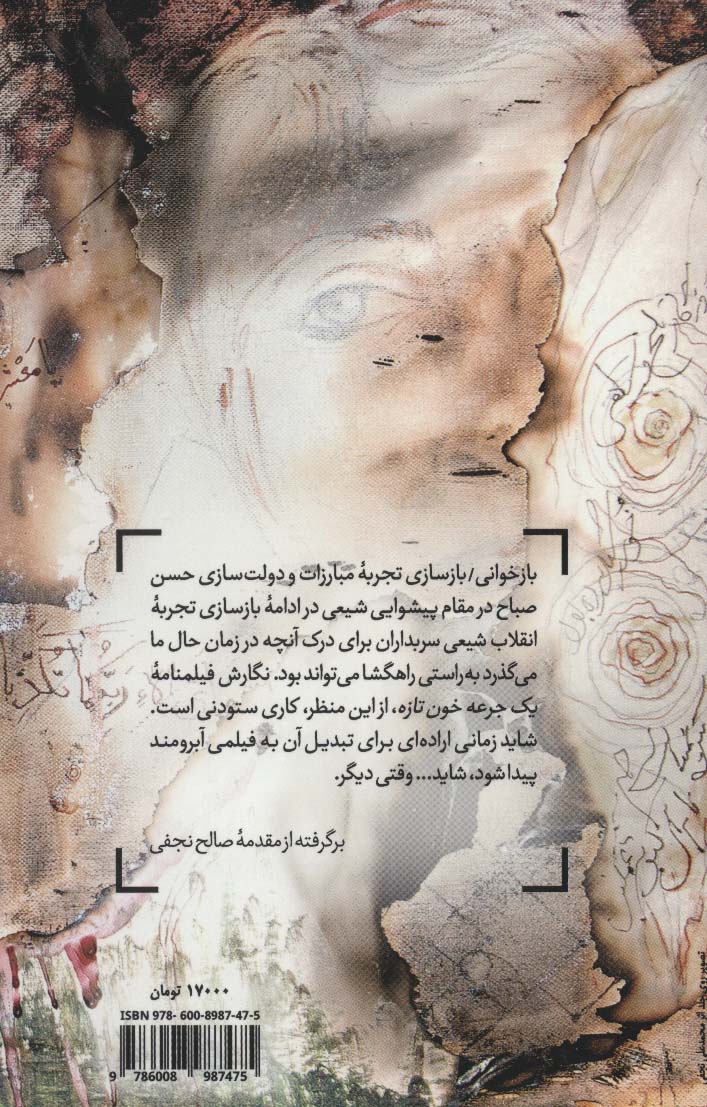 بازخوانی/بازسازی تجربهٔ مبارزات و دولت‌سازی حسن
صباح در مقام پیشوایی شیعی در ادامهٔ بازسازی تجربهٔ
انقلاب شیعی سربداران برای درک آنچه در زمان حال ما
می‌گذرد به‌راستی راهگشا می‌تواند بود. نگارش فیلمنامهٔ
یک جرعه خون تازه، از این منظر، کاری ستودنی است.
شاید زمانی اراده‌ای برای تبدیل آن به فیلمی آبرومند
پیدا شود، شاید... وقتی دیگر.
برگرفته از مقدمهٔ صالح نجفی
۱۷۰۰۰ تومان
ISBN 978- 600-8987-47-5
9 786008 987475
تصویر روی جلد: اثر محمدعلی نجفی